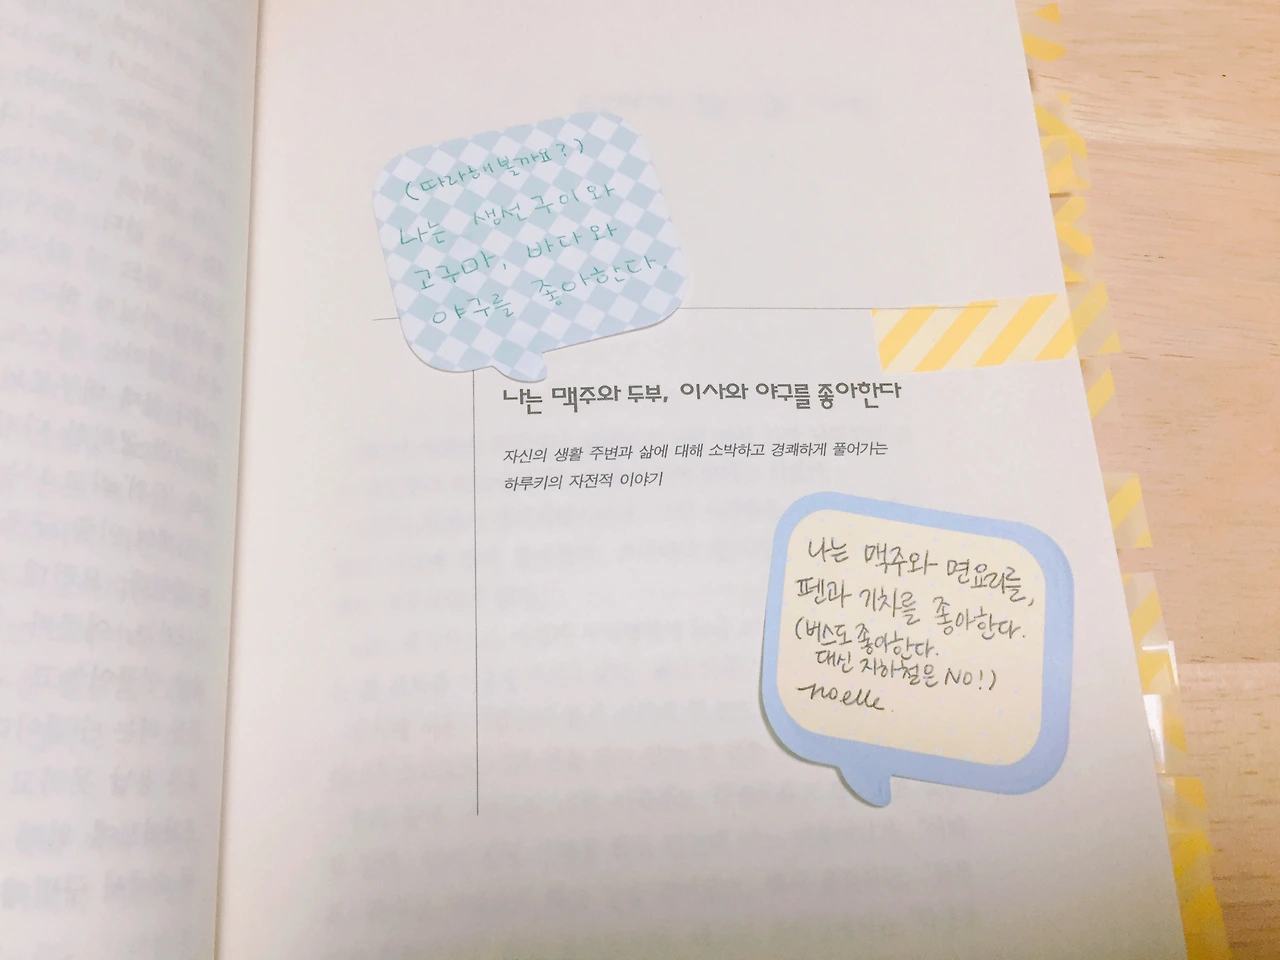 (따라해볼까요?)
나는 생선구이와
고구마, 바다와
야구를 좋아한다.
나는 맥주와 두부, 이사와 야구를 좋아한다
자신의 생활 주변과 삶에 대해 소박하고 경쾌하게 풀어가는
하루키의 자전적 이야기
나는 맥주와 면요리를,
펜과 기차를 좋아한다.
(버스도 좋아한다.
대신 지하철은 NO!)
noelle.